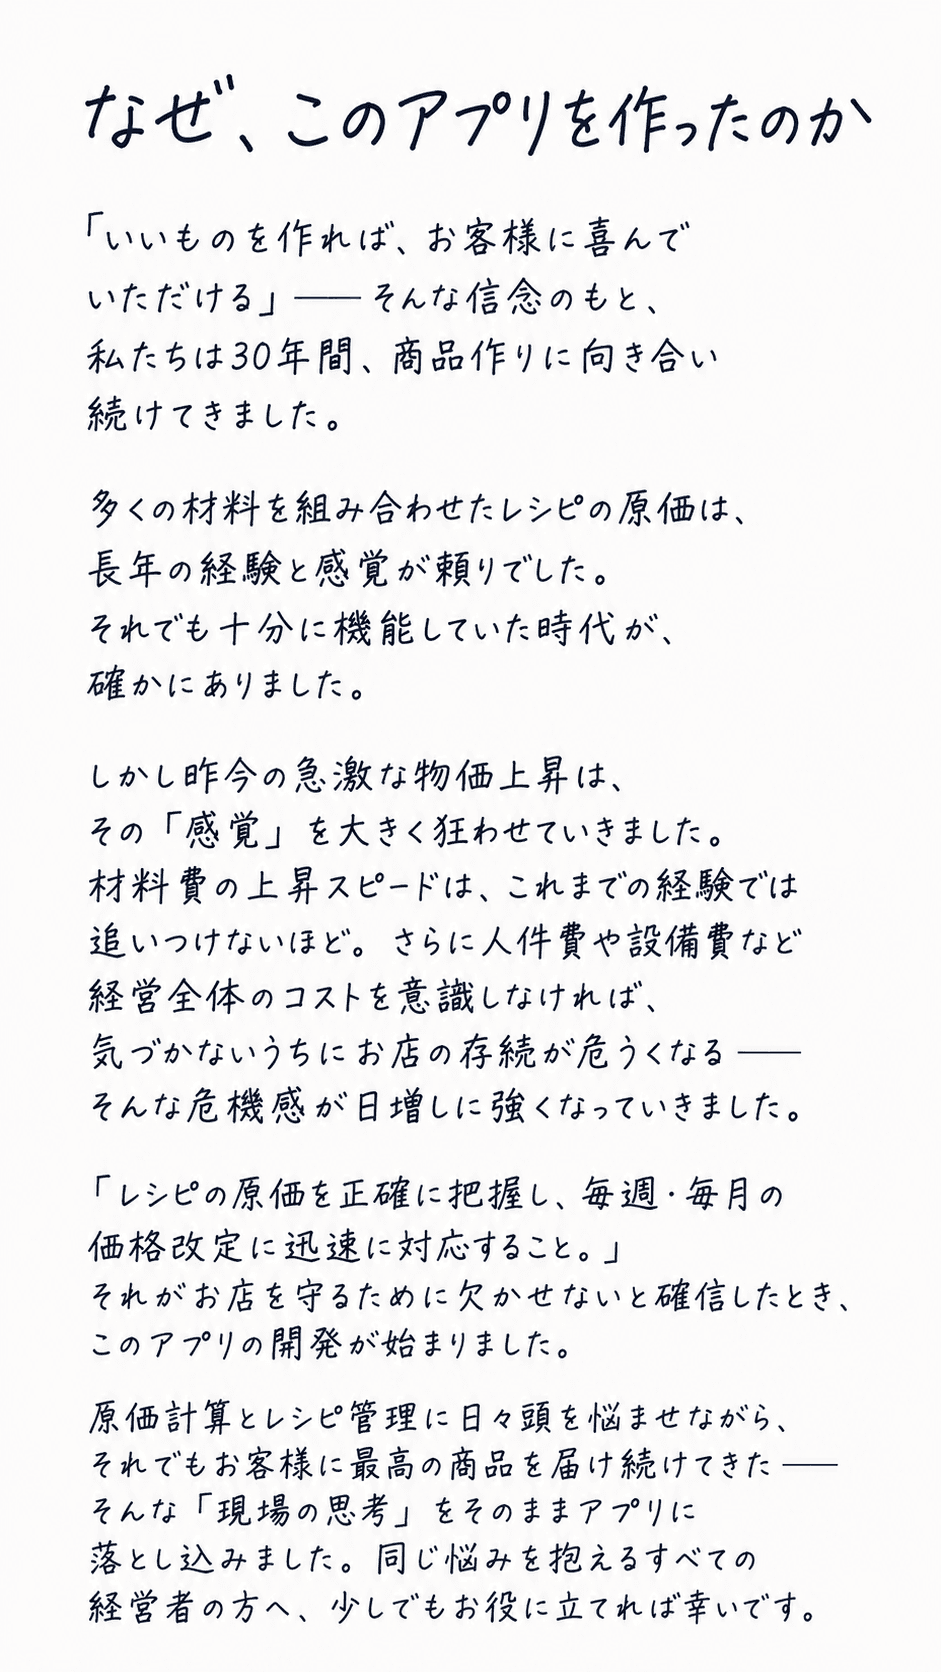 なぜ、このアプリを作ったのか
「いいものを作れば、お客様に喜んで
いただける」── そんな信念のもと、
私たちは30年間、商品作りに向き合い
続けてきました。
多くの材料を組み合わせたレシピの原価は、
長年の経験と感覚が頼りでした。
それでも十分に機能していた時代が、
確かにありました。
しかし昨今の急激な物価上昇は、
その「感覚」を大きく狂わせていきました。
材料費の上昇スピードは、これまでの経験では
追いつけないほど。さらに人件費や設備費など
経営全体のコストを意識しなければ、
気づかないうちにお店の存続が危うくなる ──
そんな危機感が日増しに強くなっていきました。
「レシピの原価を正確に把握し、毎週・毎月の
価格改定に迅速に対応すること。」
それがお店を守るために欠かせないと確信したとき、
このアプリの開発が始まりました。
原価計算とレシピ管理に日々頭を悩ませながら、
それでもお客様に最高の商品を届け続けてきた ──
そんな「現場の思考」をそのままアプリに
落とし込みました。同じ悩みを抱えるすべての
経営者の方へ、少しでもお役に立てれば幸いです。